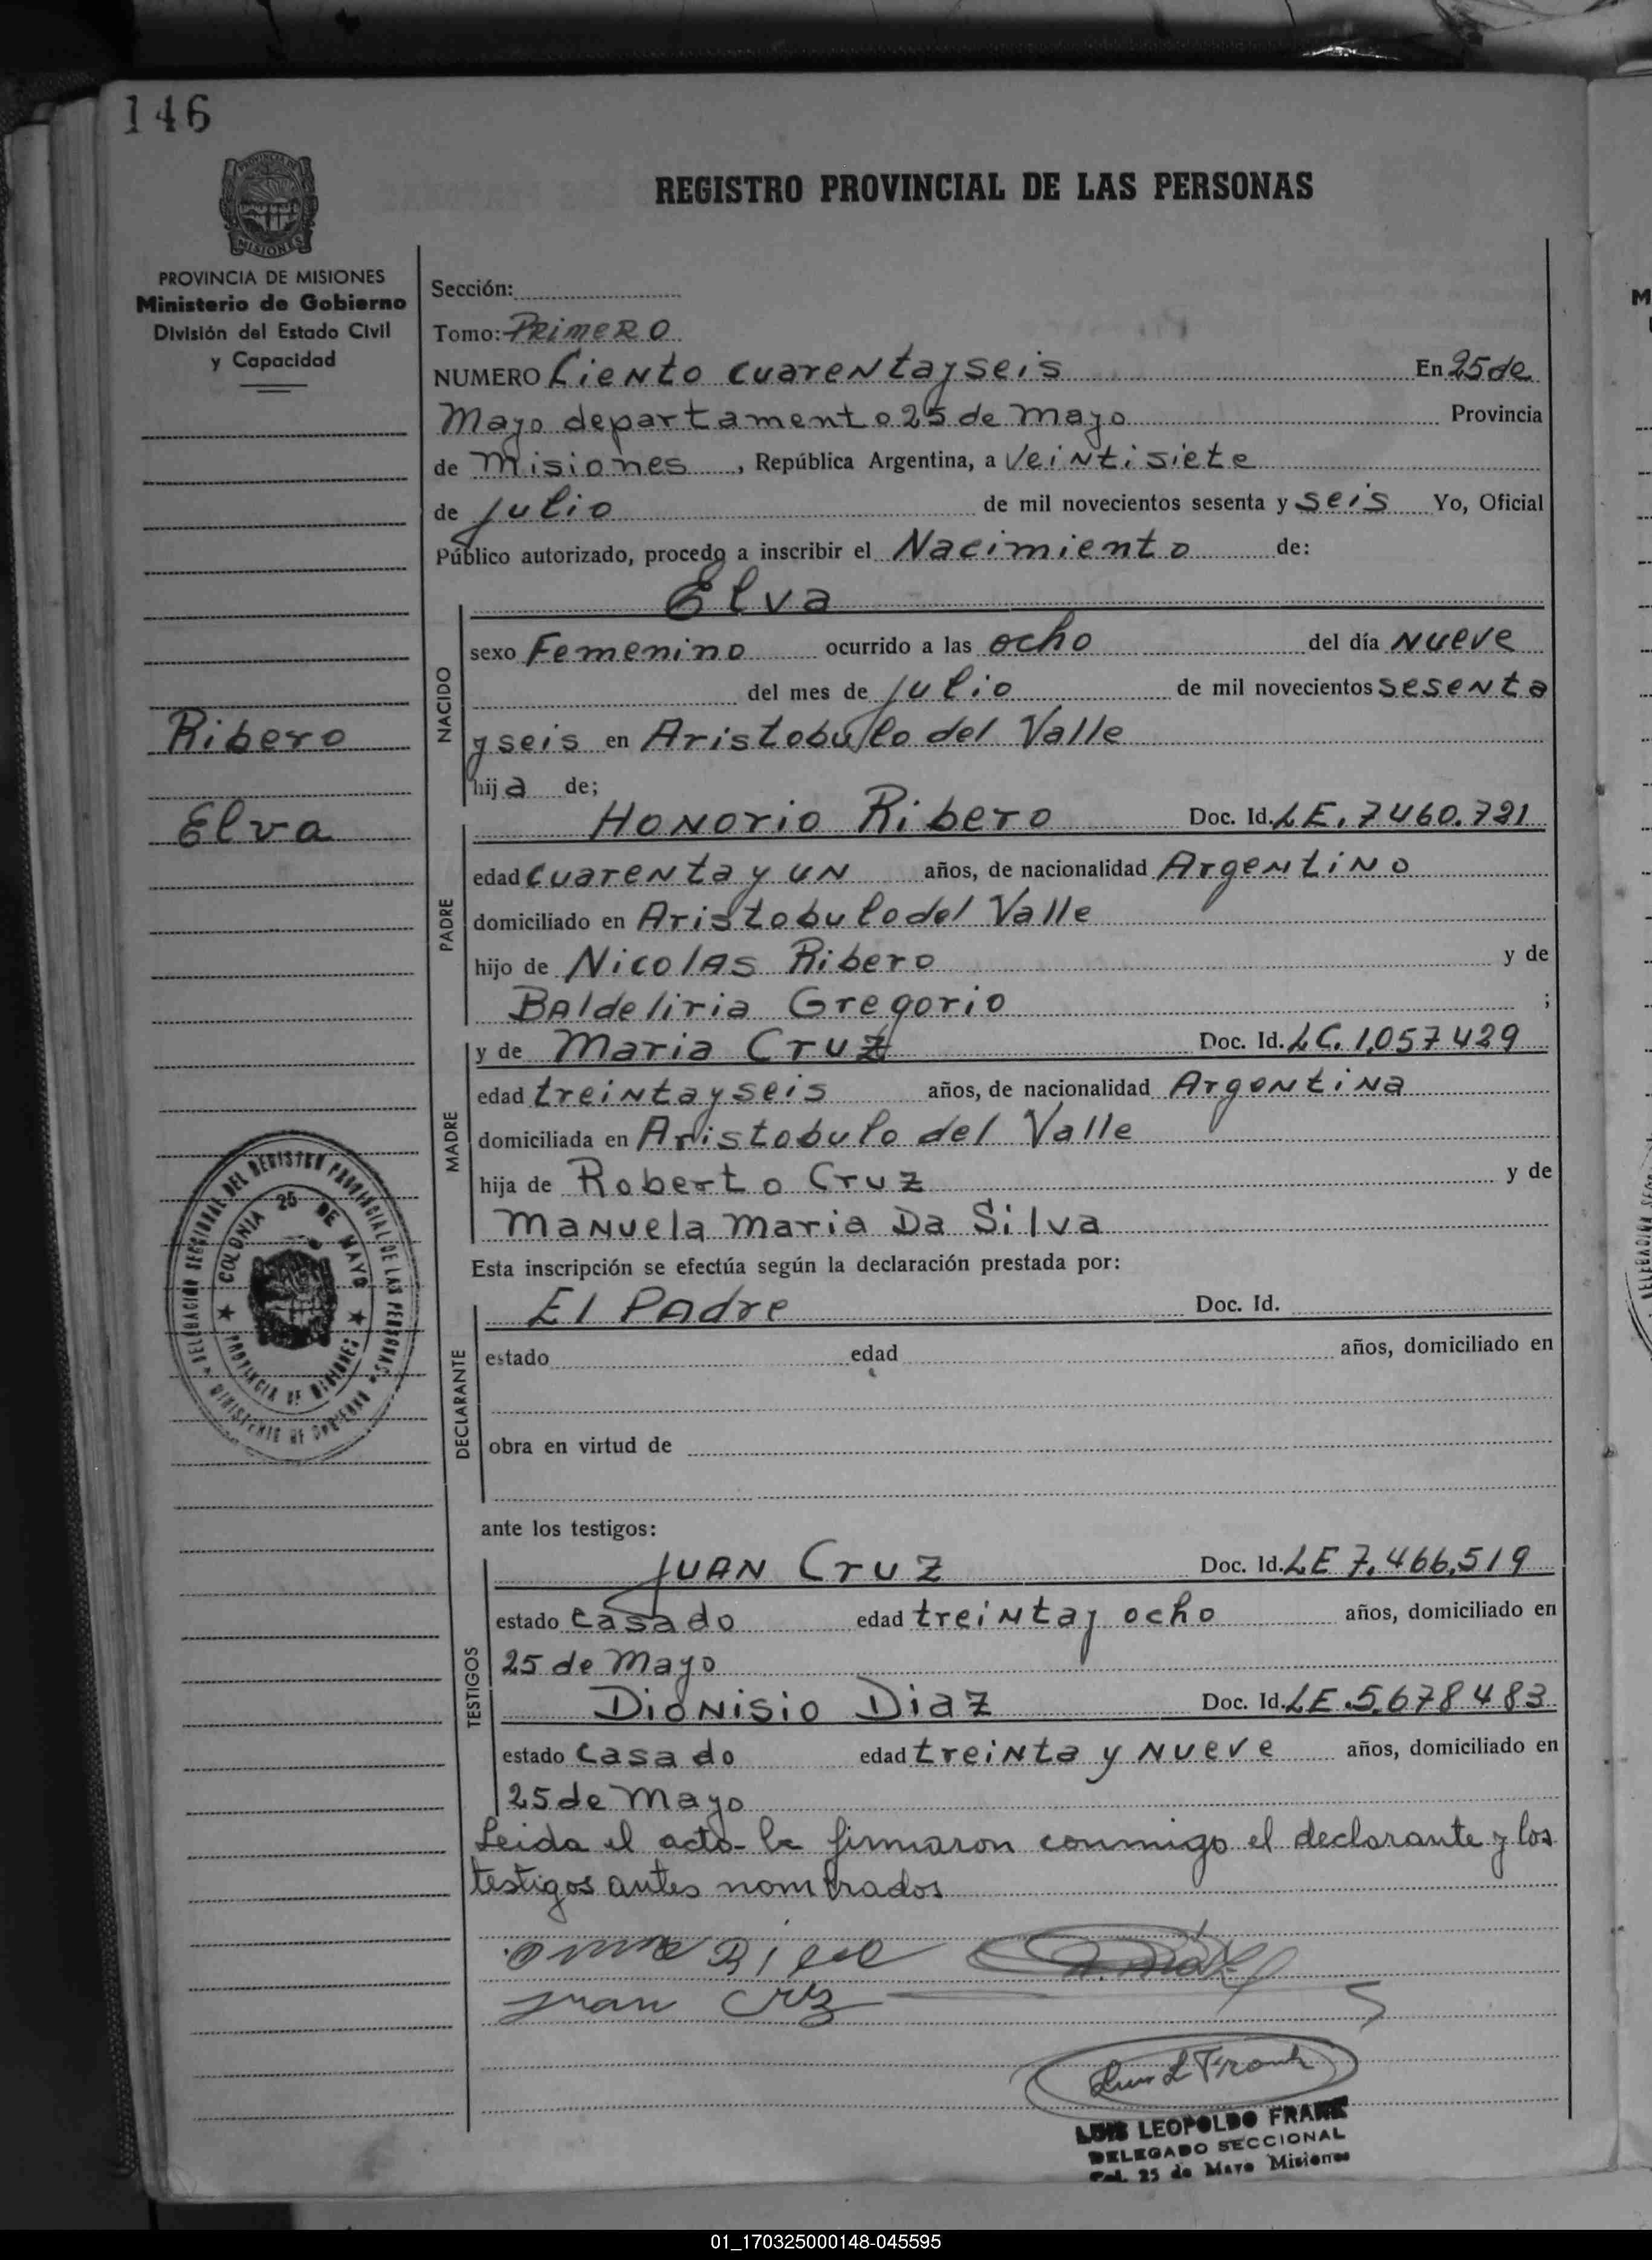 146
REGISTRO PROVINCIAL DE LAS PERSONAS
PROVINCIA DE
MISIONES
PROVINCIA DE MISIONES
Ministerio de Gobierno
División del Estado Civil
y Capacidad
Ribero
Elva
Sección:
Tomo: PRIMERO
NUMERO Ciento cuarentayseis En 25 de
Mayo departamento 25 de Mayo Provincia
de Misiones, República Argentina, a Veintisiete
de Julio de mil novecientos sesenta y seis Yo, Oficial
Público autorizado, procedo a inscribir el Nacimiento de:
NACIDO
Elva
sexo Femenino ocurrido a las ocho del día Nueve
del mes de Julio de mil novecientos sesenta
y seis en Aristobulo del Valle
hija de;
PADRE
Honorio Ribero Doc. Id. LE. 7460.721
edad cuarenta y un años, de nacionalidad Argentino
domiciliado en Aristobulo del Valle
hijo de Nicolas Ribero y de
Baldeliria Gregorio ;
MADRE
y de Maria Cruz Doc. Id. LC. 1,057429
edad treintayseis años, de nacionalidad Argentina
domiciliada en Aristobulo del Valle
hija de Roberto Cruz y de
Manuela Maria Da Silva
Esta inscripción se efectúa según la declaración prestada por:
DECLARANTE
El Padre Doc. Id.
estado edad años, domiciliado en
obra en virtud de
ante los testigos:
TESTIGOS
Juan Cruz Doc. Id. LE 7.466.519
estado casado edad treintay ocho años, domiciliado en
25 de Mayo
Dionisio Diaz Doc. Id. LE.5.678483
estado casado edad treinta y nueve años, domiciliado en
25 de Mayo
Leida el acto la firmaron conmigo el declarante y los
testigos antes nombrados
Juan Cruz
Luis L Frank
LUIS LEOPOLDO FRANK
DELEGADO SECCIONAL
Col. 25 de Mayo Misiones
DELEGACIÓN SECCIONAL DEL REGISTRO PROVINCIAL DE LAS PERSONAS
MINISTERIO DE GOBIERNO
COLONIA 25 DE MAYO
PROVINCIA DE MISIONES
01_170325000148-045595